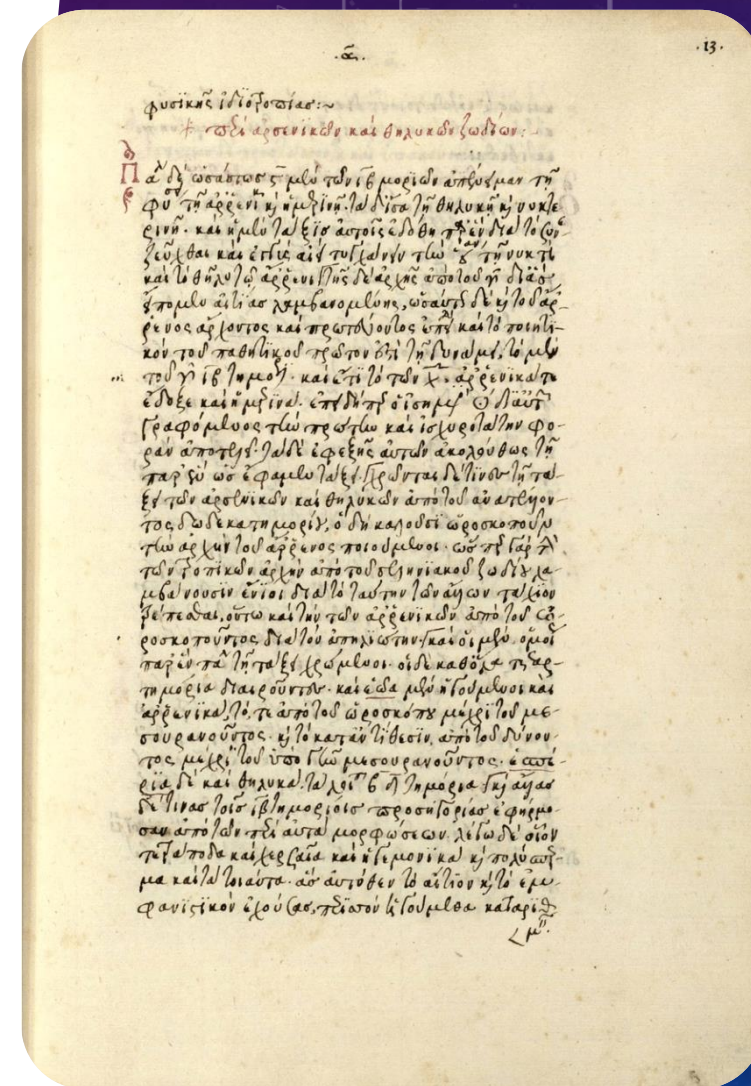 .α.
.13.
φυσϊκῆς ἰδιοτροπίας:~
περὶ ἀρσενικῶν καὶ θηλυκῶν ζωδίων:
Πά δὲ ὡσαύτως μὲν τῶν ιβ μορίων ἀπένειμαν τῇ
φύσει τῇ ἀρρενικῇ κ ἡμερινῇ. τὰ δ ἴσα τῇ θηλυκῇ κ νυκτε
ρινῇ. καὶ ἡ μὲν τάξις αὐτοῖς ἐδόθη παρ ἓν διὰ τὸ συν
ζεῦχθαι καὶ ἐγγὺς αἰεὶ τυγχάνειν τὴν τῇ νυκτὶ
καὶ τὸ θῆλυ τῷ ἄρρενι τῆς δὲ ἀρχῆς ἀπὸ τοῦ δι ἃς
εἴπομεν αἰτίας λαμβανομένης, ὡσαύτως δὲ κ τοῦ ἄρ
ρενος ἄρχοντος καὶ πρωτεύοντος ἐπεὶ καὶ τὸ ποιητι
κὸν τοῦ παθητικοῦ πρῶτον ἐπὶ τῇ δυνάμει, τὸ μὲν
τοῦ ιβτημόριον. καὶ ἔτι τὸ τῶν ἀρρενικά τε
ἔδοξε καὶ ἡμερινά. ἐπειδήπερ ὁ ἰσημερινὸς δι αὐτῶν
γραφόμενος τὴν πρώτην καὶ ἰσχυροτάτην φο
ρὰν ἀποτελεῖ. τὰ δὲ ἐφεξῆς αὐτῶν ἀκολούθως τῇ
παρ ἓν ὡς ἔφαμεν τάξει. χρῶνται δέ τινες τῇ τά
ξει τῶν ἀρσενικῶν καὶ θηλυκῶν ἀπὸ τοῦ ἀνατέλλον
τος δωδεκατημορίου, ὃ δὴ καλοῦσι ὡροσκοποῦν
τὴν ἀρχὴν τοῦ ἄρρενος ποιούμενοι. ὥσπερ γὰρ
τῶν τροπικῶν ἀρχὴν ἀπὸ τοῦ σεληνιακοῦ ζωδίου λα
μβάνουσιν ἔνιοι διὰ τὸ ταύτην τῶν ἄλλων τάχιον
τρέπεσθαι, οὕτω καὶ τὴν τῶν ἀρρενικῶν ἀπὸ τοῦ ὡ
ροσκοποῦντος διὰ τὸν ἀπηλιώτην. καὶ οἱ μὲν ὁμοί
παρ ἓν τῇ τάξει χρώμενοι. οἱ δὲ καθ ὅλα τεταρ
τημόρια διαιροῦντες. καὶ ἑῷα μὲν ἡγούμενοι καὶ
ἀρρενικά, τό, τε ἀπὸ τοῦ ὡροσκόπου μέχρι τοῦ με
σουρανοῦντος. κ τὸ κατ ἀντίθεσιν ἀπὸ τοῦ δύνον
τος μέχρι τοῦ ὑπὸ γῆν μεσουρανοῦντος. ἑσπέ
ρια δὲ καὶ θηλυκὰ τὰ λοιπὰ β τεταρτημόρια. καὶ ἄλλας
δέ τινας τοῖς ιβτημορίοις προσηγορίας ἐφήρμο
σαν ἀπὸ τῶν περὶ αὐτὰ μορφώσεων. λέγω δὲ οἷον
τετράποδα καὶ χερσαῖα καὶ ἡγεμονικὰ κ πολύσπερ
μα καὶ τὰ τοιαῦτα. ἃς αὐτόθεν τὸ αἴτιον κ τὸ ἐμ
φανιστικὸν ἐχούσας, περιττὸν ἡγούμεθα καταριθ
μεῖν.